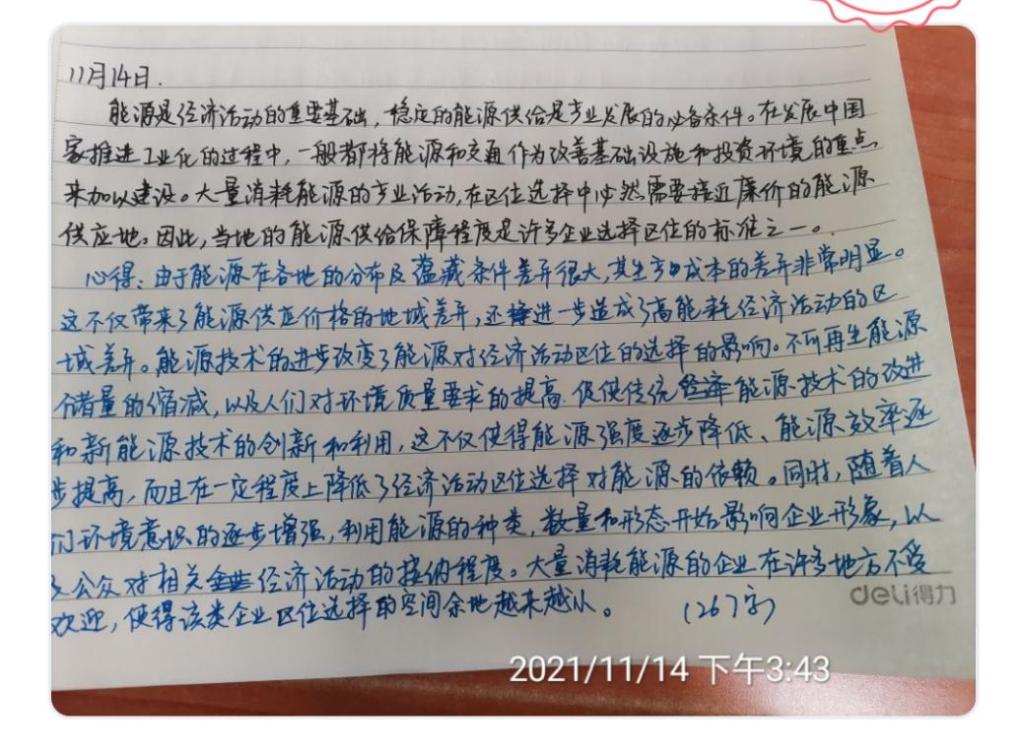 11月14日.
能源是经济活动的重要基础，稳定的能源供给是产业发展的必备条件。在发展中国
家推进工业化的过程中，一般都将能源和交通作为改善基础设施和投资环境的重点
来加以建设。大量消耗能源的产业活动，在区位选择中必然需要接近廉价的能源
供应地。因此，当地的能源供给保障程度是许多企业选择区位的标准之一。
心得：由于能源在各地的分布及蕴藏条件差异很大，其生产成本的差异非常明显。
这不仅带来了能源供应价格的地域差异，还进一步造成了高能耗经济活动的区
域差异。能源技术的进步改变了能源对经济活动区位的选择的影响。不可再生能源
储量的缩减，以及人们对环境质量要求的提高.促使传统能源技术的改进
和新能源技术的创新和利用，这不仅使得能源强度逐步降低、能源效率逐
步提高，而且在一定程度上降低了经济活动区位选择对能源的依赖。同时，随着人
们环境意识的逐步增强，利用能源的种类，数量和形态开始影响企业形象，以
及公众对相关经济活动的接纳程度。大量消耗能源的企业在许多地方不受
欢迎，使得该类企业区位选择的空间余地越来越从。 （267字）
deli得力
2021/11/14 下午3:43